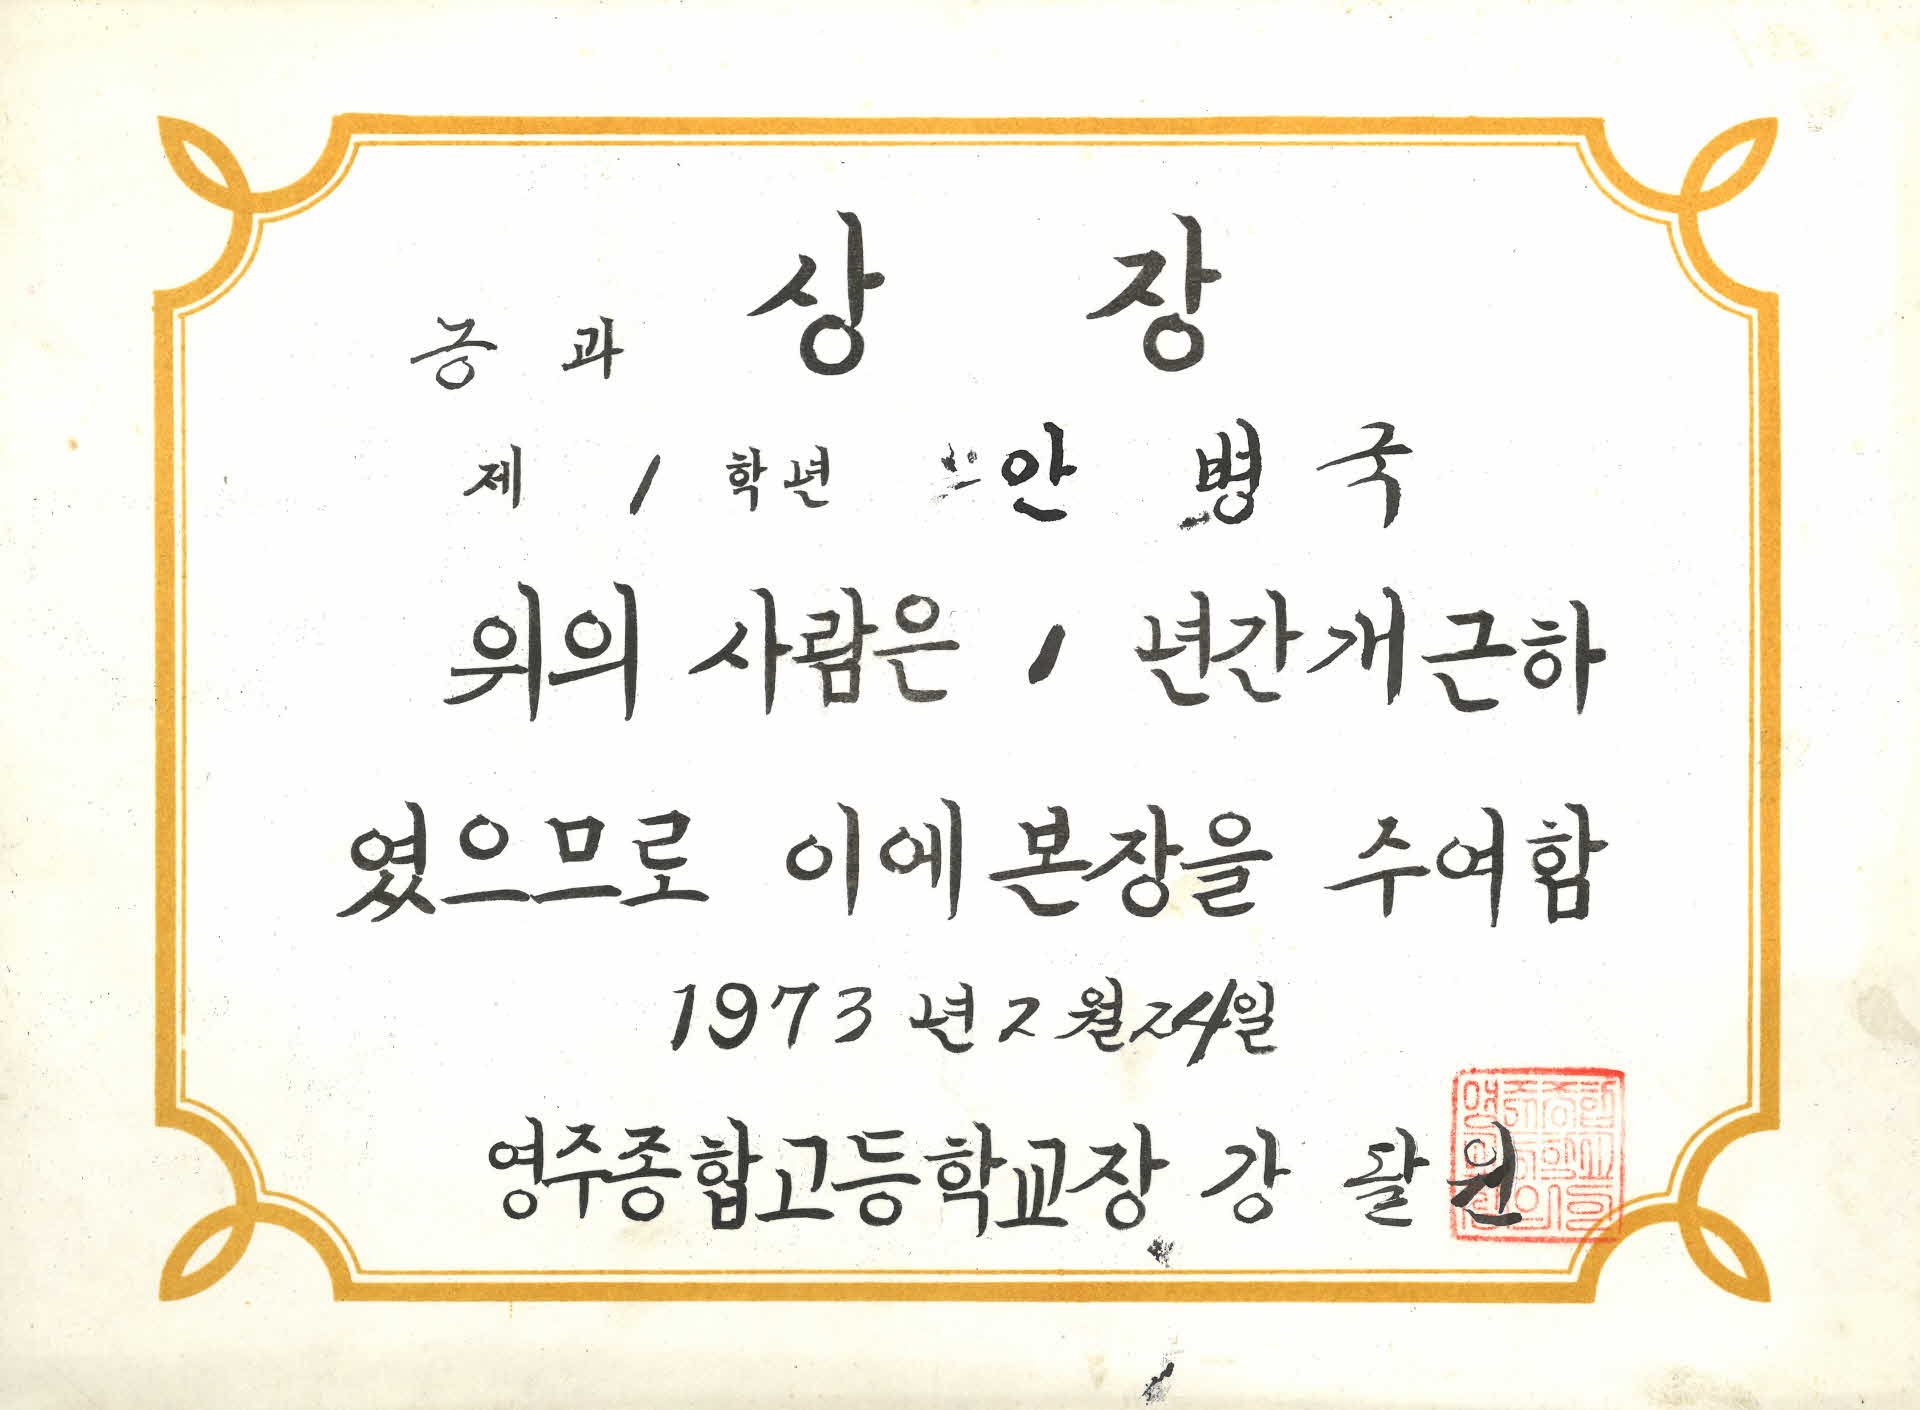 상 장
공 과
제 1 학년 안 병 국
위의 사람은 1 년간 개근하
였으므로 이에 본장을 주여함
1973 년 2 월 24 일
영주종합고등학교장 강 달 원